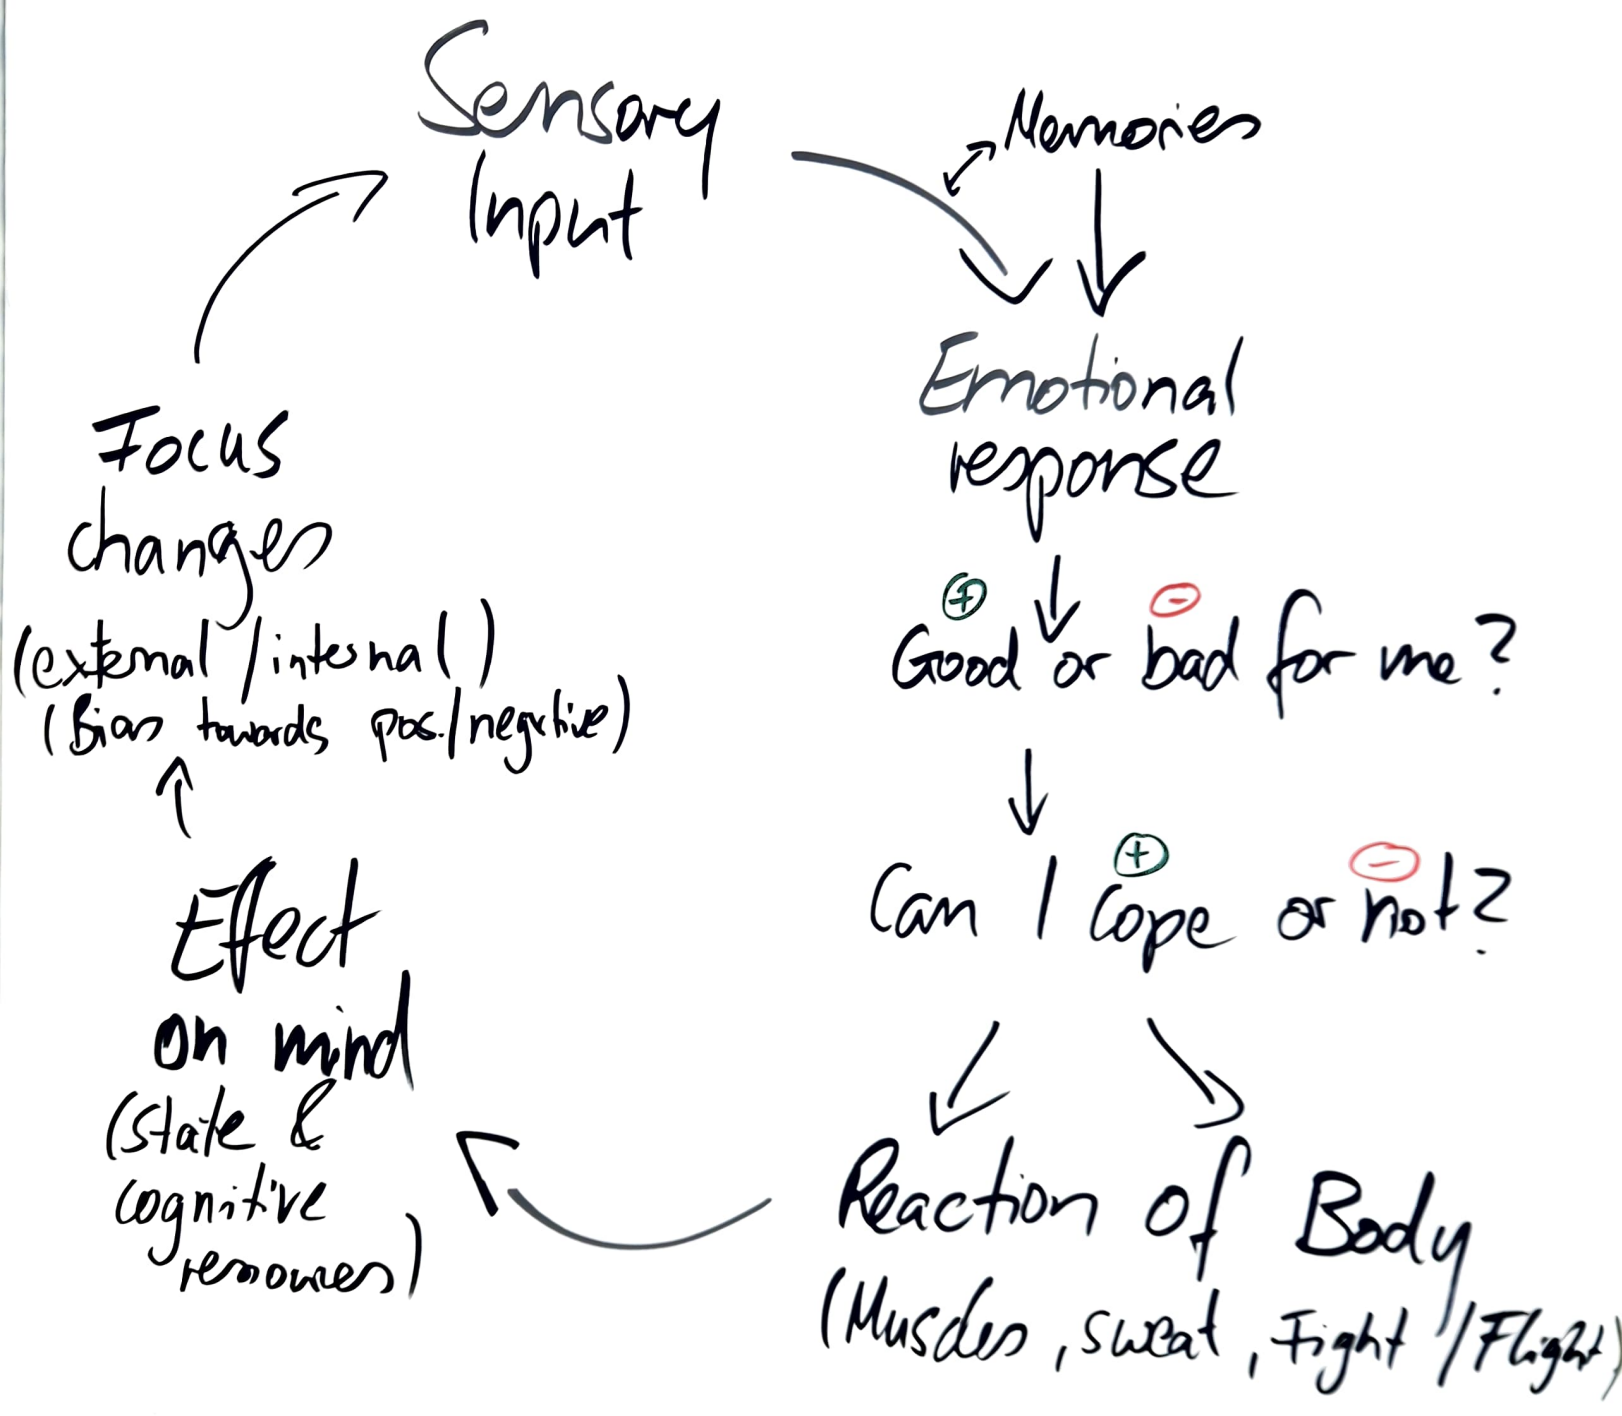 Sensory
Input
Memories
Emotional
response
+ -
Good or bad for me?
+ -
Can I cope or not?
Reaction of Body
(Muscles, sweat, Fight/Flight)
Effect
on mind
(state &
cognitive
resources)
Focus
changes
(external/internal)
(Bias towards pos./negative)